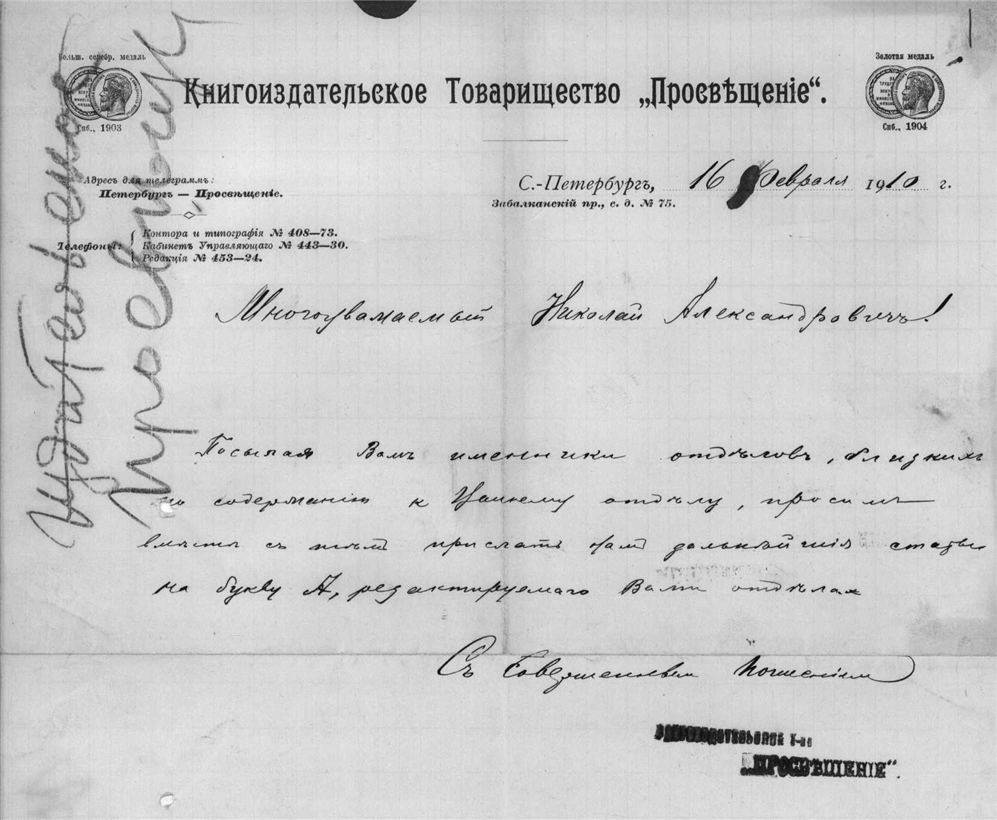 Больш. серебр. медаль
Спб., 1903
Золотая медаль
Спб., 1904
Книгоиздательское Товарищество „Просвѣщеніе“.
Адресъ для телеграммъ:
Петербургъ — Просвѣщеніе.
Телефоны:
Контора и типографія № 408—73.
Кабинетъ Управляющаго № 443—30.
Редакція № 453—24.
С.-Петербургъ, 16 Февраля 1910 г.
Забалканскій пр., с. д. № 75.
Многоуважаемый Николай Александровичъ!
Посылая Вамъ именники отдѣловъ, близкихъ
по содержанію к Вашему отдѣлу, просимъ
вмѣстѣ съ тѣмъ прислать намъ дальнѣйшія статьи
на букву А, редактируемаго Вами отдѣла
Съ совершеннымъ почтеніемъ
Книгоиздательское Т-во
„ПРОСВѢЩЕНІЕ“.